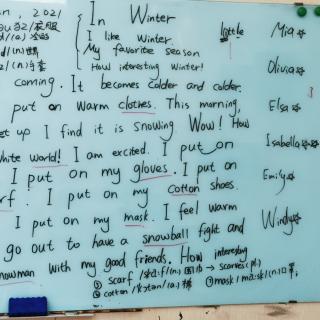 In Winter
I like Winter.
My favorite season
How interesting Winter!
little
coming. It becomes colder and colder.
put on warm clothes. This morning,
get up I find it is snowing Wow! How
white world! I am excited. I put on
I put on my gloves. I put on
I put on my cotton shoes.
I put on my mask. I feel warm
go out to have a snowball fight and
snowman with my good friends. How interesting
① scarf (n.) 围巾 → scarves (pl.)
② cotton (a.) 棉
③ mask (n.) 口罩
Mia
Olivia
Elsa
Isabella
Emily
Windy